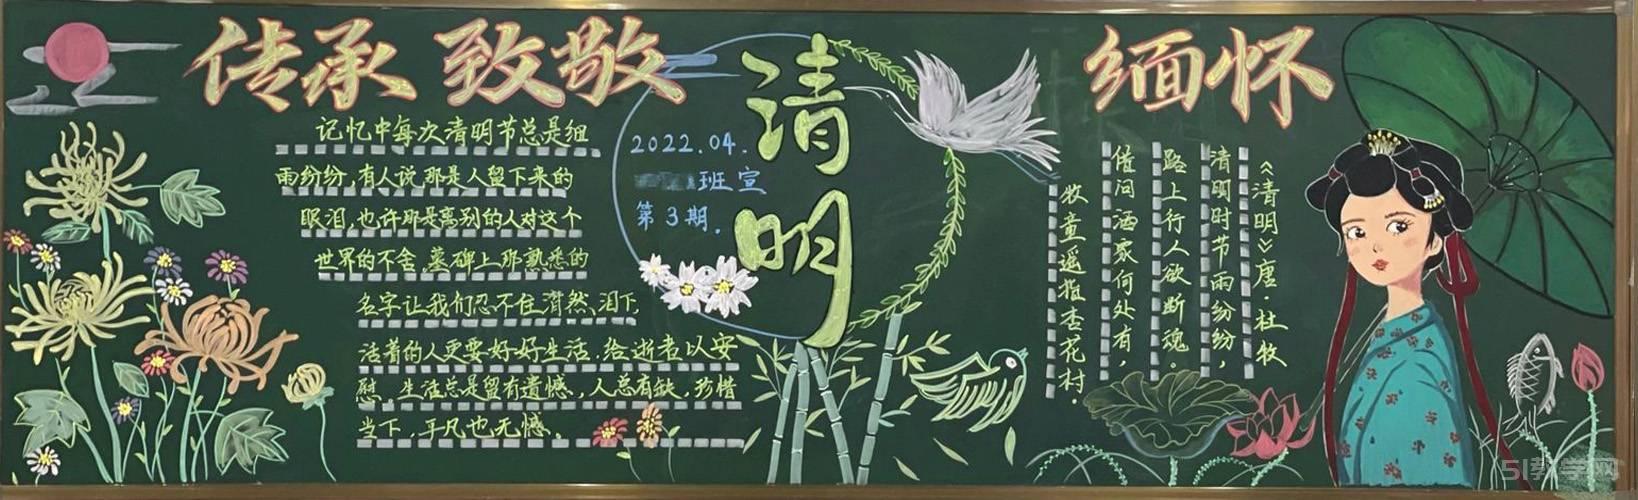 传承 致敬
清明
缅怀
记忆中每次清明节总是细
雨纷纷,有人说那是人留下来的
眼泪,也许那是离别的人对这个
世界的不舍,墓碑上那熟悉的
名字让我们忍不住潸然泪下,
活着的人更要好好生活.给逝者以安
慰,生活总是留有遗憾,人总有缺,珍惜
当下,平凡也无憾。
2022.04.
班宣
第3期.
《清明》唐·杜牧
清明时节雨纷纷,
路上行人欲断魂。
借问酒家何处有,
牧童遥指杏花村.
51教学网